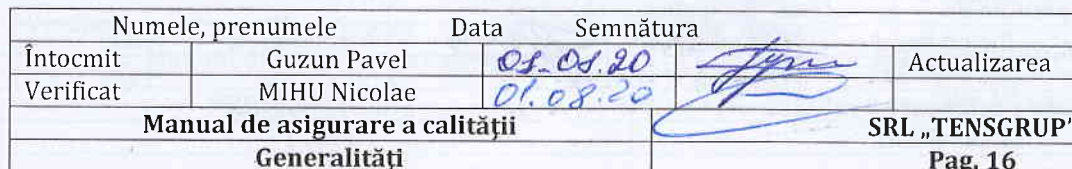 Numele, prenumele Data Semnătura
Întocmit Guzun Pavel Actualizarea
Verificat MIHU Nicolae 01.08.20
Manual de asigurare a calității SRL „TENSGRUP"
Generalități Pag. 16